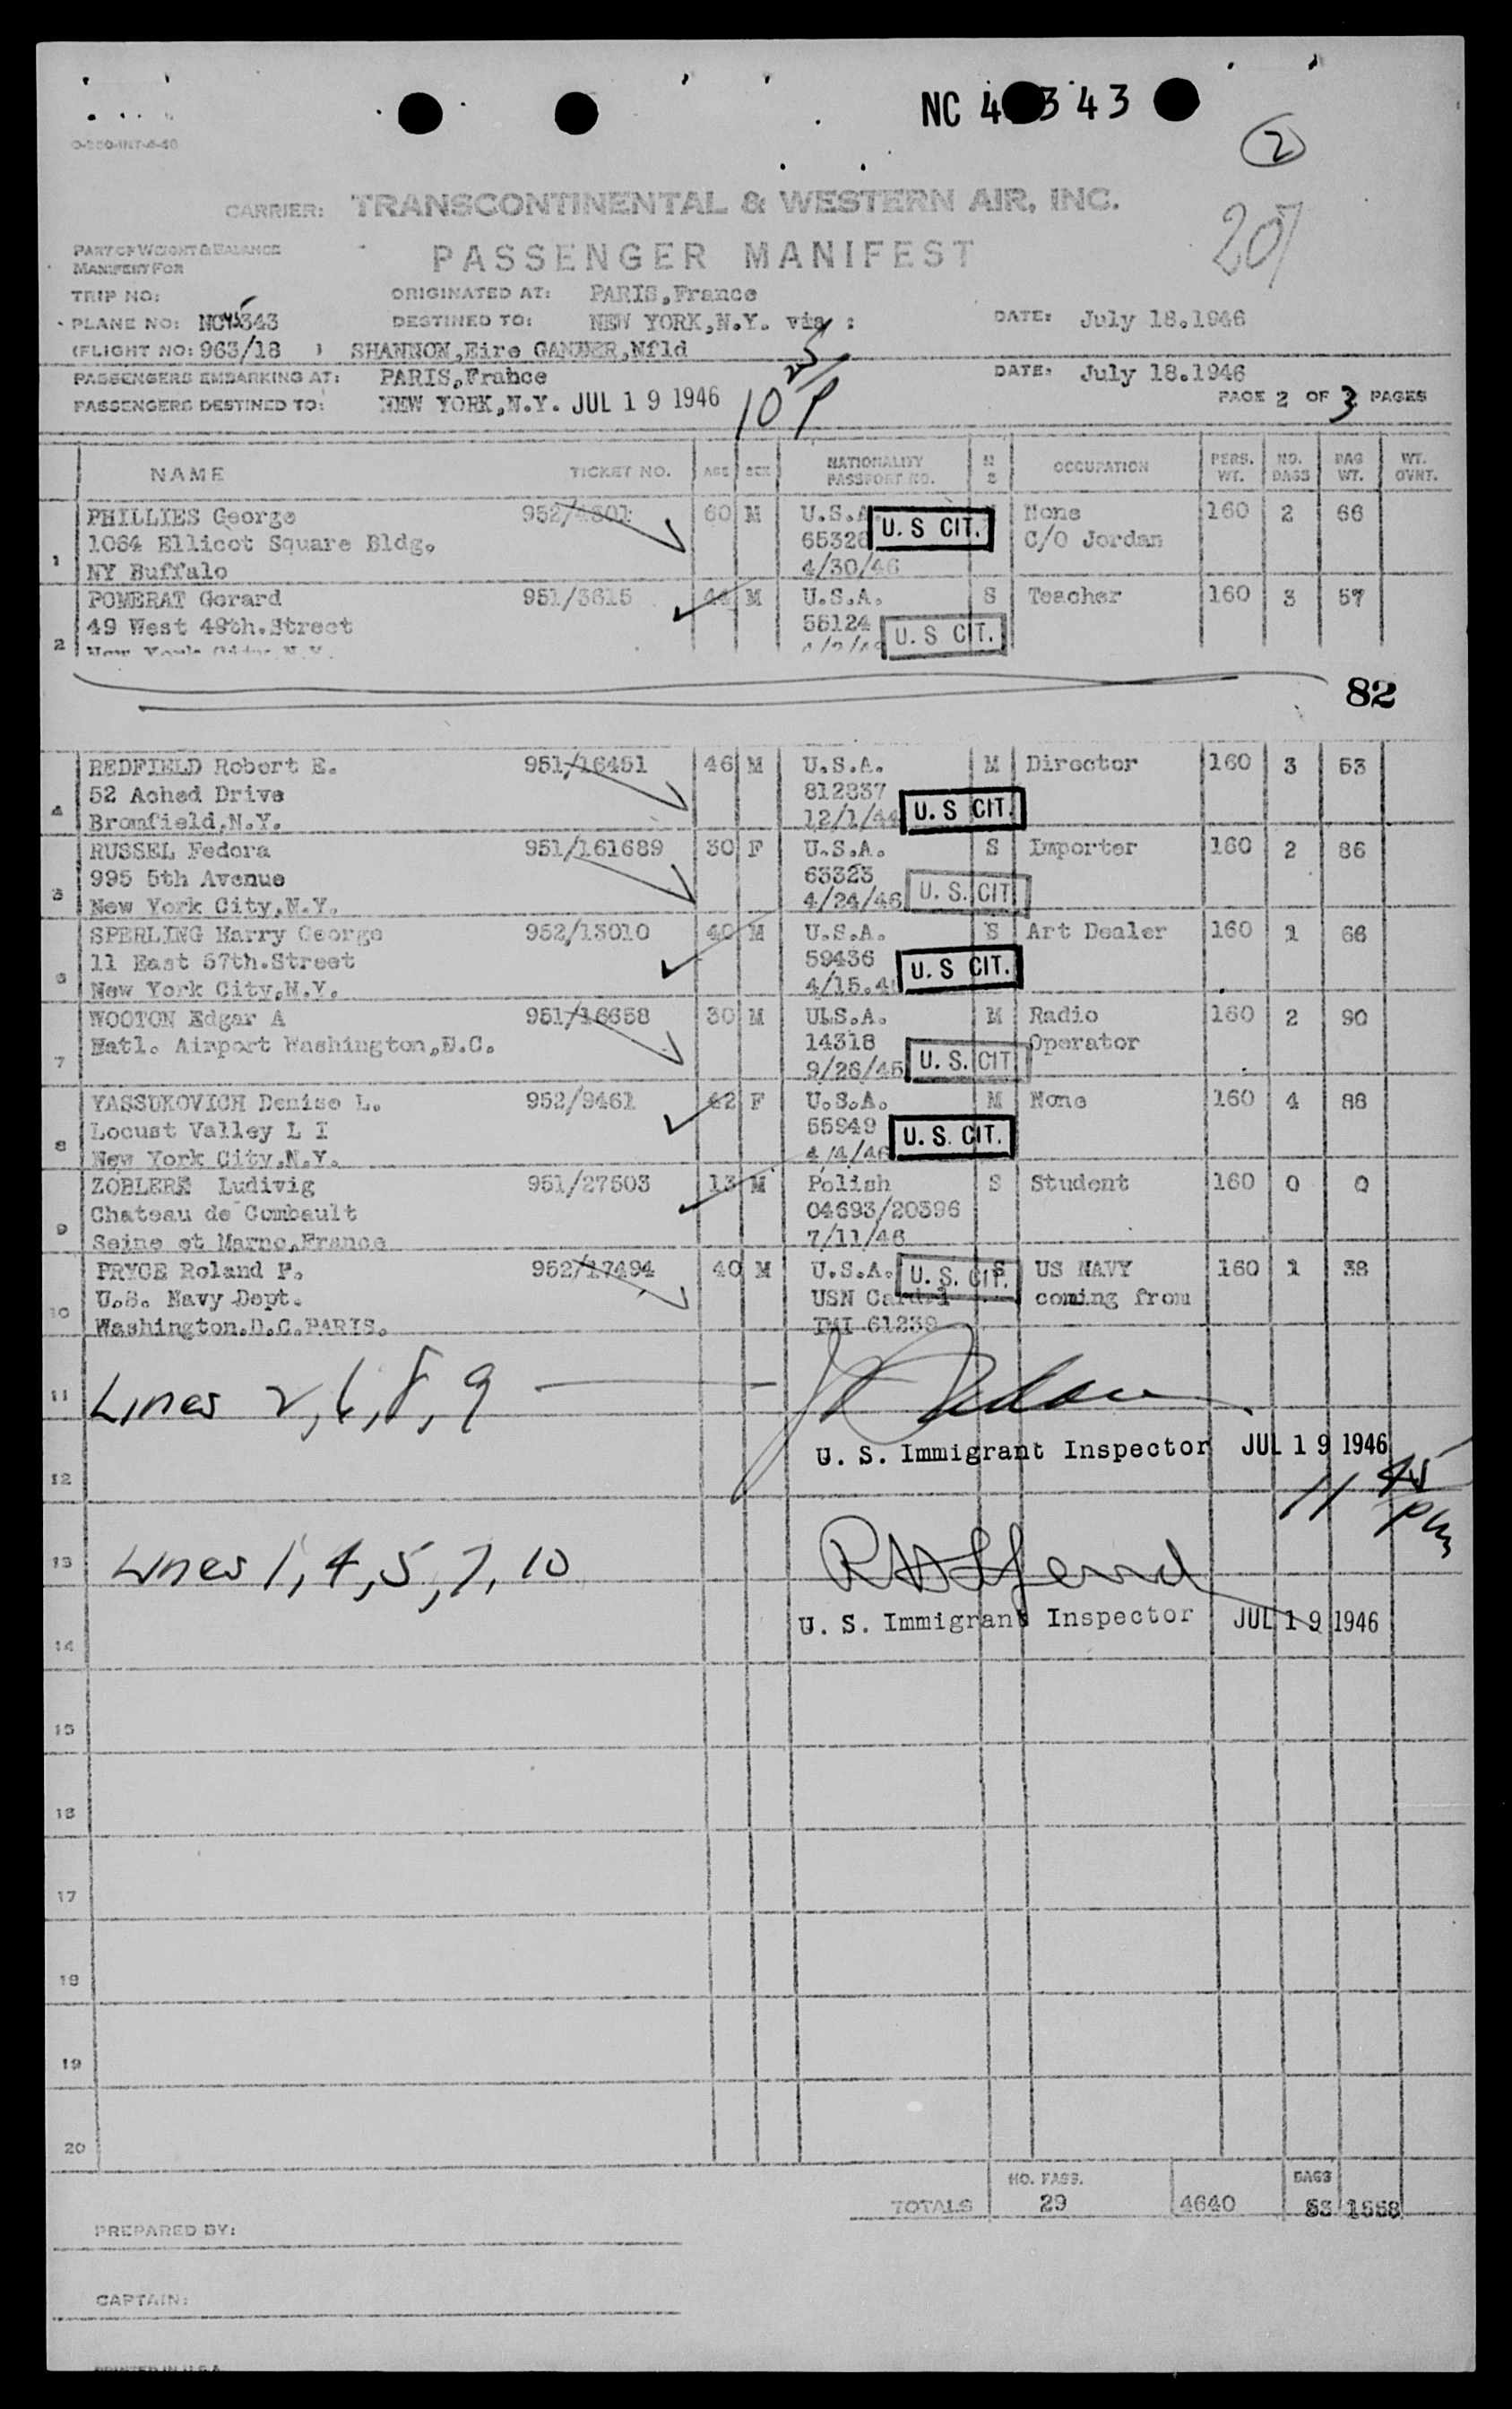 NC 4 343
2
O-250-INT-4-46
207
CARRIER: TRANSCONTINENTAL & WESTERN AIR, INC.
PART OF WEIGHT & BALANCE
MANIFEST FOR
PASSENGER MANIFEST
TRIP NO: ORIGINATED AT: PARIS,France
PLANE NO: NC45343 DESTINED TO: NEW YORK,N.Y. via : DATE: July 18.1946
(FLIGHT NO: 963/18 ) SHANNON,Eire GANDER,Nfld
PASSENGERS EMBARKING AT: PARIS,France DATE: July 18.1946
PASSENGERS DESTINED TO: NEW YORK,N.Y. JUL 19 1946 10 25/P PAGE 2 OF 3 PAGES
NAME TICKET NO. AGE SEX NATIONALITY PASSPORT NO. M S OCCUPATION PERS. WT. NO. BAGS BAG WT. WT. OVNT.
PHILLIES George 952/4801 60 M U.S.A. None 160 2 66
1064 Ellicot Square Bldg. 65326 U. S CIT. C/O Jordan
1 NY Buffalo 4/30/46
POMERAT Gerard 951/3615 44 M U.S.A. S Teacher 160 3 57
49 West 49th.Street 56124 U. S CIT.
2 New York City N.Y.
82
REDFIELD Robert E. 951/16451 46 M U.S.A. M Director 160 3 53
52 Ached Drive 812837
4 Bromfield,N.Y. 12/1/44 U. S CIT.
RUSSEL Fedora 951/161689 30 F U.S.A. S Importer 160 2 86
995 5th Avenue 63323
5 New York City,N.Y. 4/24/46 U. S. CIT
SPERLING Harry George 952/13010 40 M U.S.A. S Art Dealer 160 1 66
11 East 57th.Street 59436
6 New York City,N.Y. 4/15.4 U. S CIT.
WOOTON Edgar A 951/16658 30 M U.S.A. M Radio 160 2 90
Natl. Airport Washington,D.C. 14318 Operator
7 9/26/45 U. S. CIT
YASSUKOVICH Denise L. 952/9461 42 F U.S.A. M None 160 4 88
Locust Valley L I 55949
8 New York City,N.Y. 4/4/46 U. S. CIT.
ZOBLERE Ludivig 951/27503 13 M Polish S Student 160 0 0
Chateau de Combault 04693/20396
9 Seine et Marne,France 7/11/46
PRYCE Roland P. 952/17494 40 M U.S.A. U. S. CIT. S US NAVY 160 1 38
10 U.S. Navy Dept. USN coming from
Washington.D.C.PARIS. TMI 61239
11 Lines 2, 6, 8, 9
U. S. Immigrant Inspector JUL 19 1946
12
11 45 pm
13 Lines 1, 4, 5, 7, 10
U. S. Immigrant Inspector JUL 19 1946
14
15
16
17
18
19
20
NO. PASS. BAGS
TOTALS 29 4640 53 1558
PREPARED BY:
CAPTAIN:
PRINTED IN U.S.A.